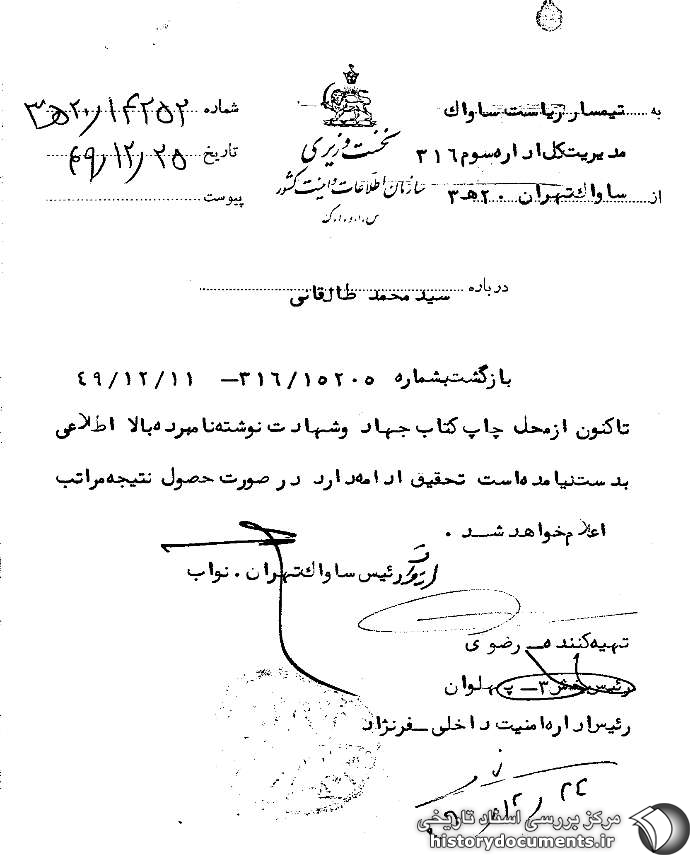 به تیمسار ریاست ساواک
مدیریت کل اداره سوم ۳۱۶
از ساواک تهران ۲۰هـ۳
نخست وزیری
سازمان اطلاعات و امنیت کشور
س.ا.و.ا.ک
شماره ۱۴۲۵۲/۲۰هـ۳
تاریخ ۴۹/۱۲/۲۵
پیوست
درباره سید محمد طالقانی
بازگشت بشماره ۳۱۶/۱۵۲۰۵ – ۴۹/۱۲/۱۱
تاکنون از محل چاپ کتاب جهاد و شهادت نوشته نامبرده بالا اطلاعی
بدست نیامده است تحقیق ادامه دارد در صورت حصول نتیجه مراتب
اعلام خواهد شد .
رئیس ساواک تهران . نواب
تهیه کننده – رضوی
رئیس بخش ۳ – پهلوان
رئیس اداره امنیت داخلی – فرنژاد
۲۴/۱۲
مرکز بررسی اسناد تاریخی
historydocuments.ir